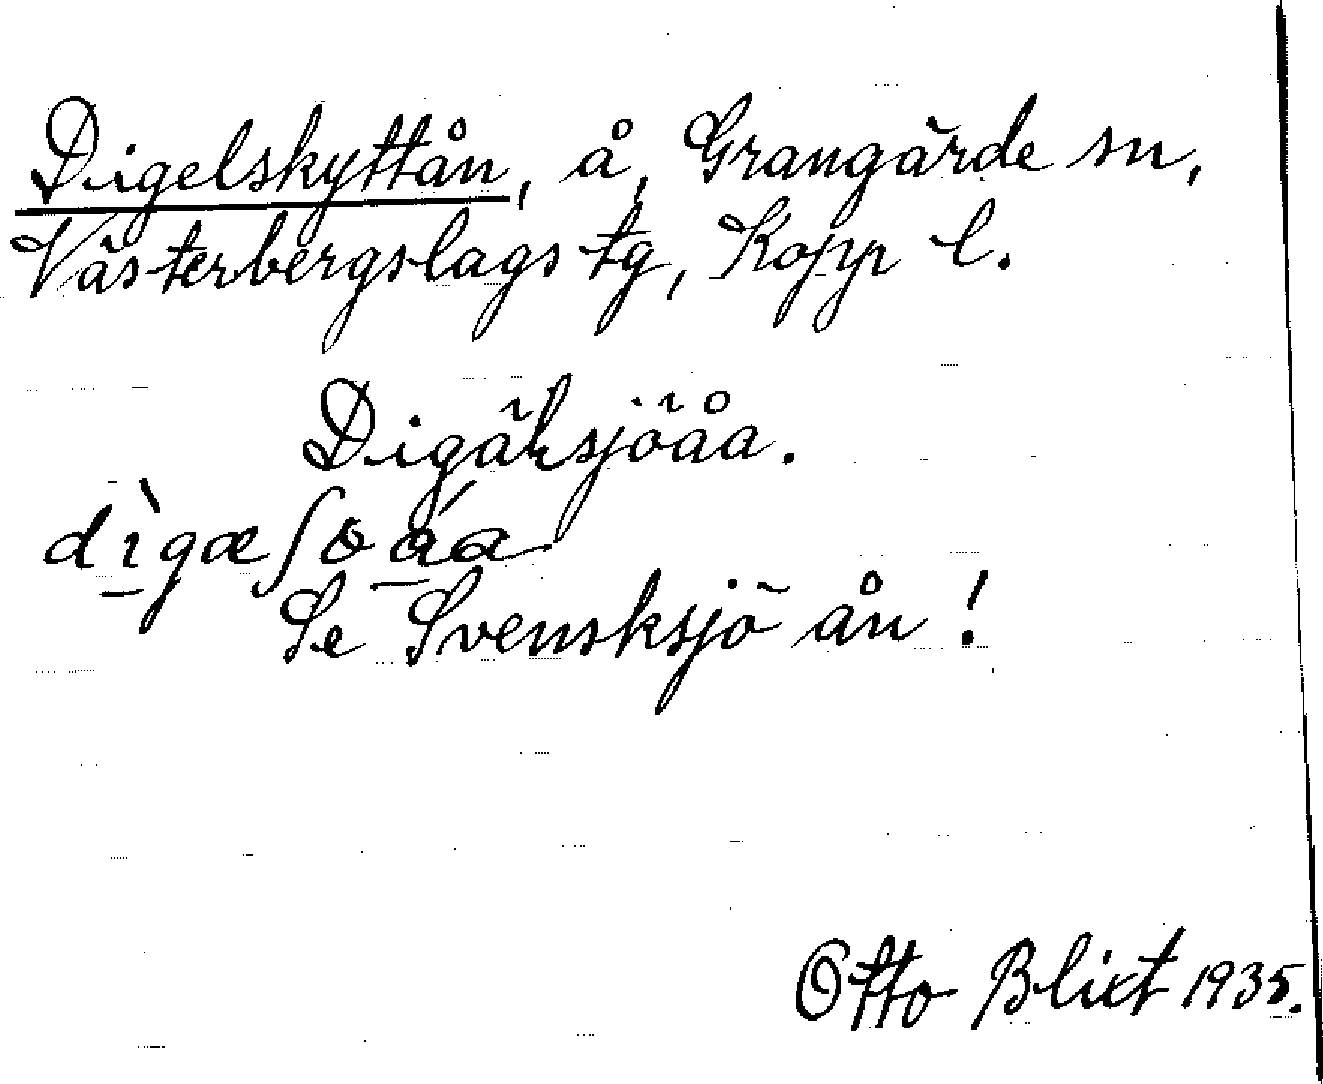 Digelskyttån, å, Grangärde sn,
Västerbergslags tg, Kopp l.
Digälsjöåa.
dìgæʃɵ áa
Se Svensksjö ån!
Otto Blixt 1935.